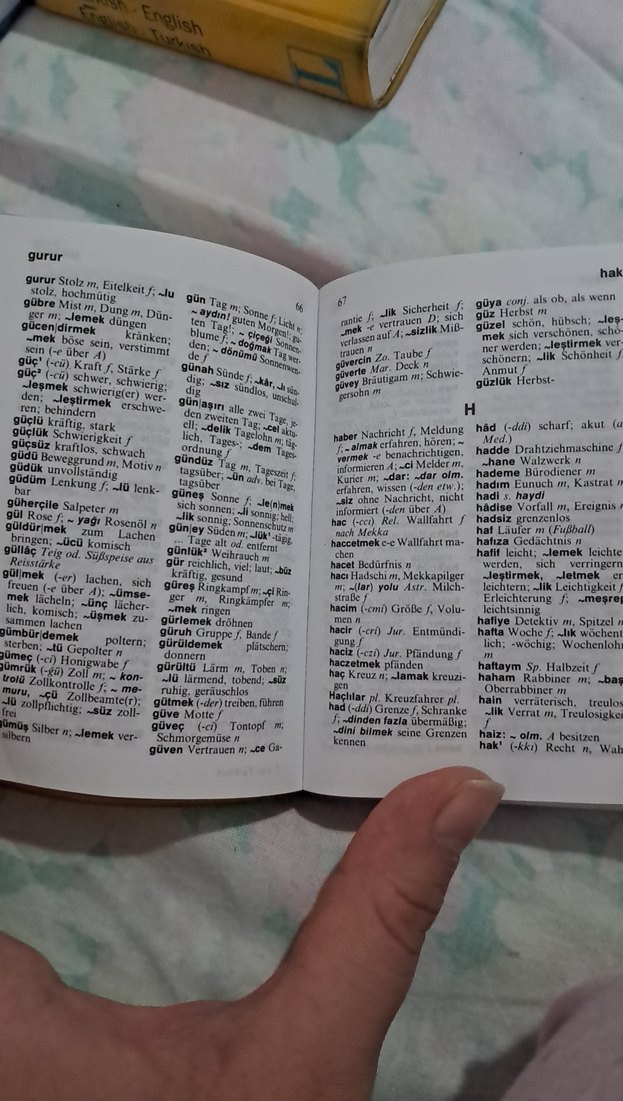 - English
English - Turkish
L
gurur
gurur Stolz m, Eitelkeit f; ~lu
stolz, hochmütig
gübre Mist m, Dung m, Dün-
ger m; ~lemek düngen
gücen|dirmek kränken;
~mek böse sein, verstimmt
sein (-e über A)
güç¹ (-cü) Kraft f, Stärke f
güç² (-cü) schwer, schwierig;
~leşmek schwierig(er) wer-
den; ~leştirmek erschwe-
ren; behindern
güçlü kräftig, stark
güçlük Schwierigkeit f
güçsüz kraftlos, schwach
güdü Beweggrund m, Motiv n
güdük unvollständig
güdüm Lenkung f; ~lü lenk-
bar
güherçile Salpeter m
gül Rose f; ~ yağı Rosenöl n
güldür|mek zum Lachen
bringen; ~ücü komisch
güllâç Teig od. Süßspeise aus
Reisstärke
gül|mek (-er) lachen, sich
freuen (-e über A); ~ümse-
mek lächeln; ~ünç lächer-
lich, komisch; ~üşmek zu-
sammen lachen
gümbür|demek poltern;
sterben; ~tü Gepolter n
gümeç (-ci) Honigwabe f
gümrük (-ğü) Zoll m; ~ kon-
trolü Zollkontrolle f; ~ me-
muru, ~çü Zollbeamte(r);
~lü zollpflichtig; ~süz zoll-
frei
gümüş Silber n; ~lemek ver-
silbern
66
gün Tag m; Sonne f; Licht n;
~ aydın! guten Morgen!, gu-
ten Tag!; ~ çiçeği Sonnen-
blume f; ~ doğmak Tag wer-
den; ~ dönümü Sonnenwen-
de f
günah Sünde f; ~kâr, ~lı sün-
dig; ~sız sündlos, unschul-
dig
gün|aşırı alle zwei Tage, je-
den zweiten Tag; ~cel aktu-
ell; ~delik Tagelohn m; täg-
lich, Tages-; ~dem Tages-
ordnung f
gündüz Tag m, Tageszeit f;
tagsüber; ~ün adv. bei Tage,
tagsüber
güneş Sonne f; ~le(n)mek
sich sonnen; ~li sonnig; hell;
~lik sonnig; Sonnenschutz m
gün|ey Süden m; ~lük¹ -tägig,
... Tage alt od. entfernt
günlük² Weihrauch m
gür reichlich, viel; laut; ~büz
kräftig, gesund
güreş Ringkampf m; ~çi Rin-
ger m, Ringkämpfer m;
~mek ringen
gürlemek dröhnen
güruh Gruppe f, Bande f
gürüldemek plätschern;
donnern
gürültü Lärm m, Toben n;
~lü lärmend, tobend; ~süz
ruhig, geräuschlos
gütmek (-der) treiben, führen
güve Motte f
güveç (-ci) Tontopf m;
Schmorgemüse n
güven Vertrauen n; ~ce Ga-
67
rantie f; ~lik Sicherheit f;
~mek -e vertrauen D; sich
verlassen auf A; ~sizlik Miß-
trauen n
güvercin Zo. Taube f
güverte Mar. Deck n
güvey Bräutigam m; Schwie-
gersohn m
haber Nachricht f, Meldung
f; ~ almak erfahren, hören; ~
vermek -e benachrichtigen,
informieren A; ~ci Melder m,
Kurier m; ~dar: ~dar olm.
erfahren, wissen (-den etw.);
~siz ohne Nachricht, nicht
informiert (-den über A)
hac (-cci) Rel. Wallfahrt f
nach Mekka
haccetmek e-e Wallfahrt ma-
chen
hacet Bedürfnis n
hacı Hadschi m, Mekkapilger
m; ~(lar) yolu Astr. Milch-
straße f
hacim (-cmi) Größe f, Volu-
men n
hacir (-cri) Jur. Entmündi-
gung f
haciz (-czi) Jur. Pfändung f
haczetmek pfänden
haç Kreuz n; ~lamak kreuzi-
gen
Haçlılar pl. Kreuzfahrer pl.
had (-ddi) Grenze f, Schranke
f; ~dinden fazla übermäßig;
~dini bilmek seine Grenzen
kennen
hak
güya conj. als ob, als wenn
güz Herbst m
güzel schön, hübsch; ~leş-
mek sich verschönen, schö-
ner werden; ~leştirmek ver-
schönern; ~lik Schönheit f,
Anmut f
güzlük Herbst-
H
hâd (-ddi) scharf; akut (a.
Med.)
hadde Drahtziehmaschine f
~hane Walzwerk n
hademe Bürodiener m
hadım Eunuch m, Kastrat m
hadi s. haydi
hâdise Vorfall m, Ereignis n
hadsiz grenzenlos
haf Läufer m (Fußball)
hafıza Gedächtnis n
hafif leicht; ~lemek leichte
werden, sich verringern
~leştirmek, ~letmek er
leichtern; ~lik Leichtigkeit f
Erleichterung f; ~meşrep
leichtsinnig
hafiye Detektiv m, Spitzel m
hafta Woche f; ~lık wöchent
lich; -wöchig; Wochenlohn
m
haftaym Sp. Halbzeit f
haham Rabbiner m; ~baş
Oberrabbiner m
hain verräterisch, treulos
~lik Verrat m, Treulosigkei
f
haiz: ~ olm. A besitzen
hak¹ (-kkı) Recht n, Wah